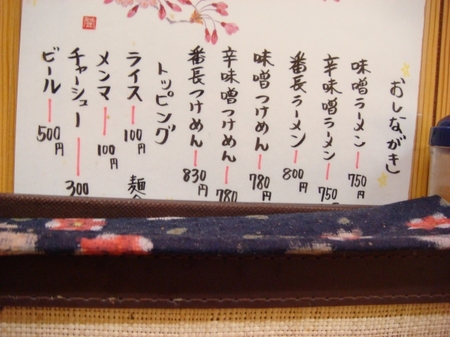 おしながき
味噌ラーメン 750円
辛味噌ラーメン 750
番長ラーメン 800円
味噌つけめん 780円
辛味噌つけめん 780
番長つけめん 830円
トッピング 麺
ライス 100円
メンマ 100円
チャーシュー 300
ビール 500円